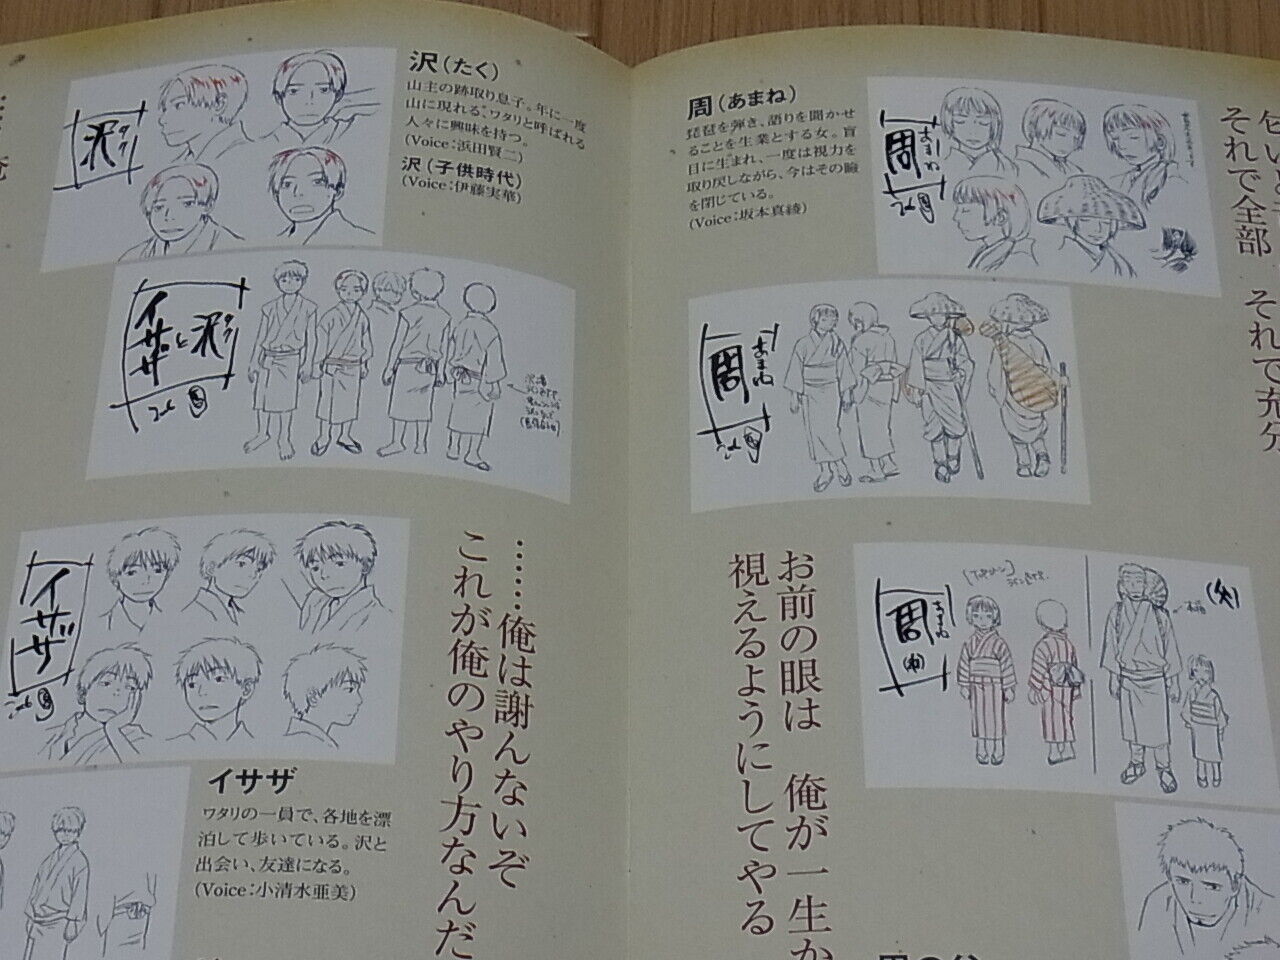 沢（たく）
山主の跡取り息子。年に一度
山に現れる“ワタリ”と呼ばれる
人々に興味を持つ。
（Voice：浜田賢二）
沢（子供時代）
（Voice：伊藤実華）
沢
タク
イサザと沢
タク
イサザ
イサザ
ワタリの一員で、各地を漂
泊して歩いている。沢と
出会い、友達になる。
（Voice：小清水亜美）
……俺は謝んないぞ
これが俺のやり方なんだ
周（あまね）
琵琶を弾き、語りを聞かせ
ることを生業とする女。盲
目に生まれ、一度は視力を
取り戻しながら、今はその瞼
を閉じている。
（Voice：坂本真綾）
周
あまね
周
あまね
周
あまね
（幼）
（父）
お前の眼は　俺が一生か
視えるようにしてやる
それで全部　それで充分